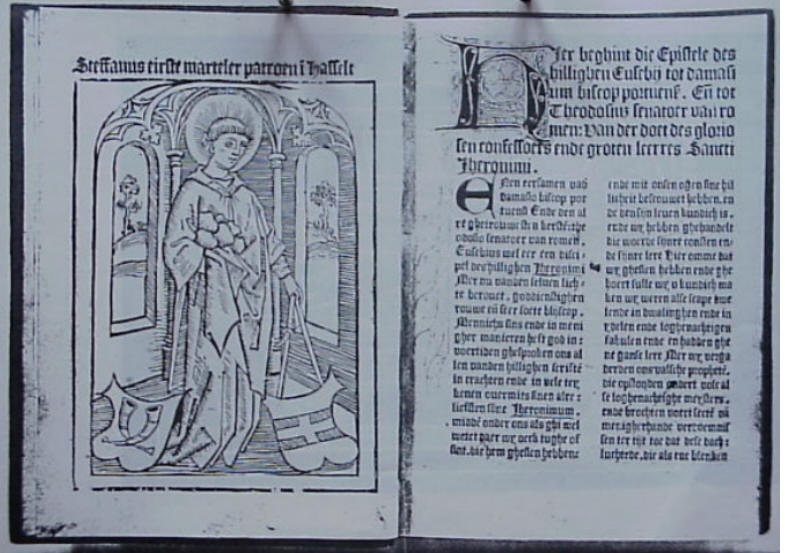 Steffanus eirste marteler patroen ī Hasselt
Hier beghint die Epistele des
hillighen Eusebij tot damasi
um biscop portuenſ. Eñ tot
Theodosius senatoer van ro
men: Van der doet des glorio
sen confessoers ende groten leerres Sancti
Jheronimi.
Enen eersamen vad
damasio biscop por
tuenſ Ende den al
re ghetrouwesten kersten: the
odosio senatoer van romen.
Eusebius wel eer een disci-
pel des hillighen Jheronimi
Mer nu vanden seluen lich-
te berouet. goddienstighen
rouwe eñ seer soete blijscop.
Mennichs sins ende in meni
gher manieren heft god in:
voertiden ghesproken ons al
len vanden hillighen scrifte
in crachten ende in vele tey
kenen ouermits sinen alre:
liefsten sone Jheronimum.
onder ons als ghi wel
wetet daer wy oeck tughe of
sint. die hem ghesien hebben:
ende mit onsen oghen sine hil
licheit bescouwet hebben. en
de den sin leuen kundich is.
ende wy hebben ghehandelt
die woerde synre consten en-
de synre lere Hier omme dat
wy ghesien hebben ende ghe
hoert sulle wy v kundich ma
ken wy weren alse scape dwe
lende in dwalinghen ende in
ydelen ende loghenachtigen
fabulen ende en hadden ghe
ne ganse lere Mer wy verga
derden ons valsche prophetē.
die opstonden ondert volc al
se loghenachtighe meysters.
ende brochten voert sectē vā
menigherhande verdoemnis
sen ter tijt toe dat dese dach:
luchtede. die als ene blenken